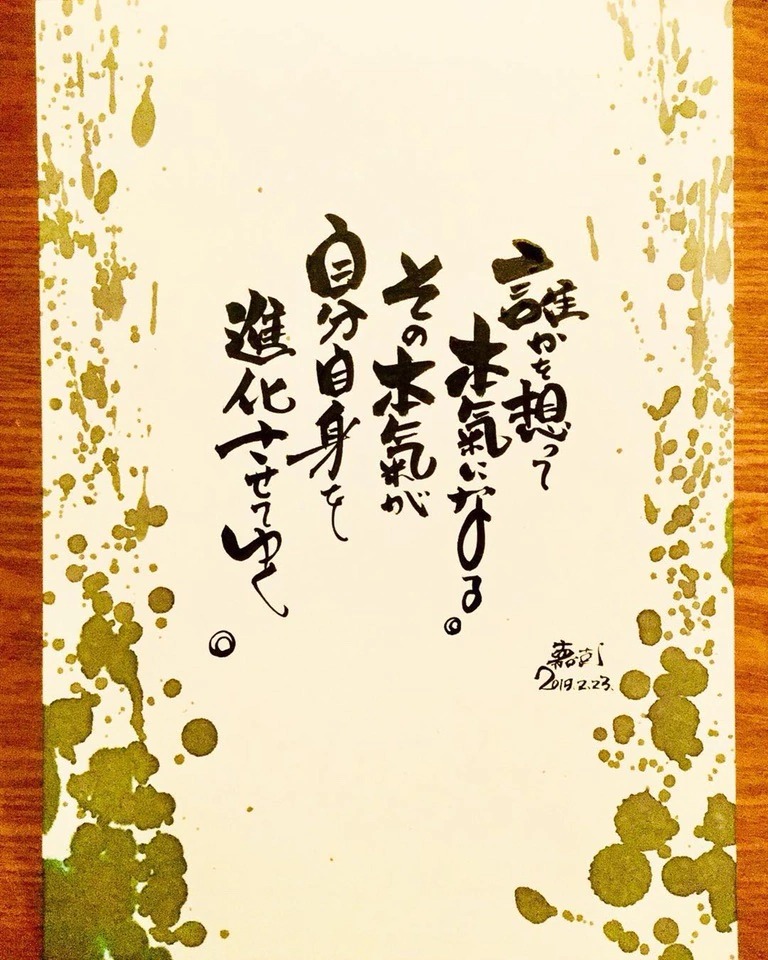 誰かを想って
本氣になる。
その本氣が
自分自身を
進化させてゆく。
2019.2.23.